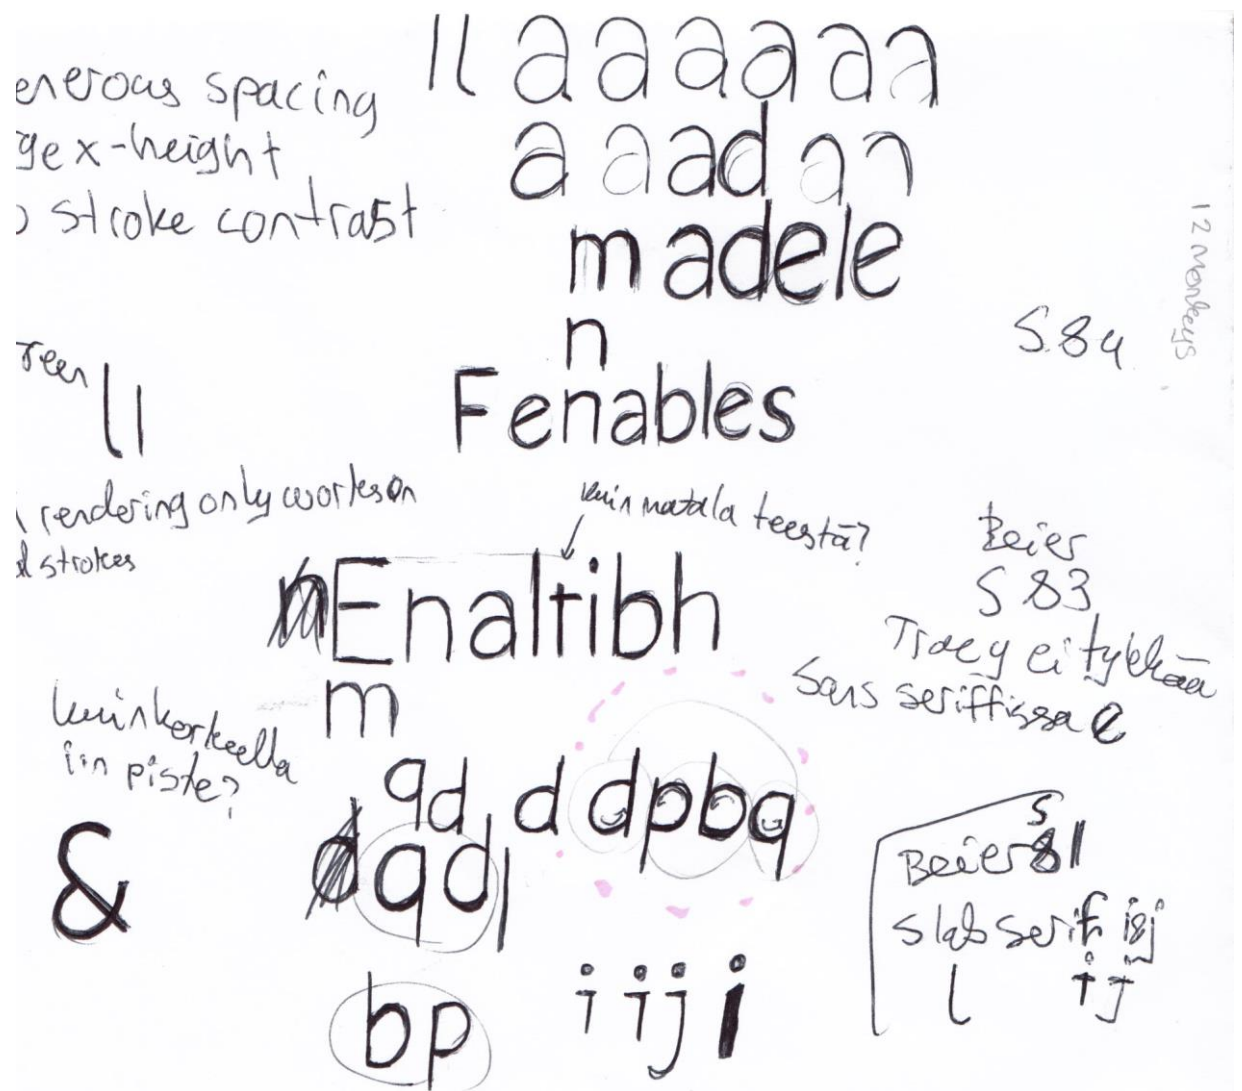 ll a a a a a a
enerous spacing
ge x-height
o stroke contrast
a a a d a a
m adele
n
12 Monkeys
S. 84
reen
l l
Fenables
rendering only works on
al strokes
kuin matala teestä?
nEnaltibh
m
Beier
S 83
Tracy ei tykkää
Sans seriffissa e
kuin korkeella
iin piste?
q d d d p b q
&
d q d l
b p
i i j i
S
Beier 81
slab serif i&j
l i j